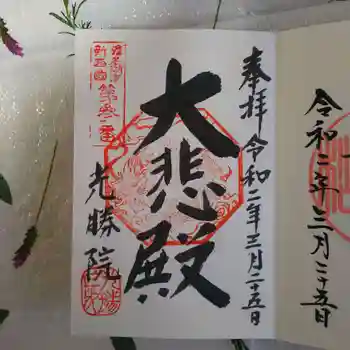 奉拝 令和二年三月二十五日
大悲殿
第参番
光勝院
令和二年三月二十五日